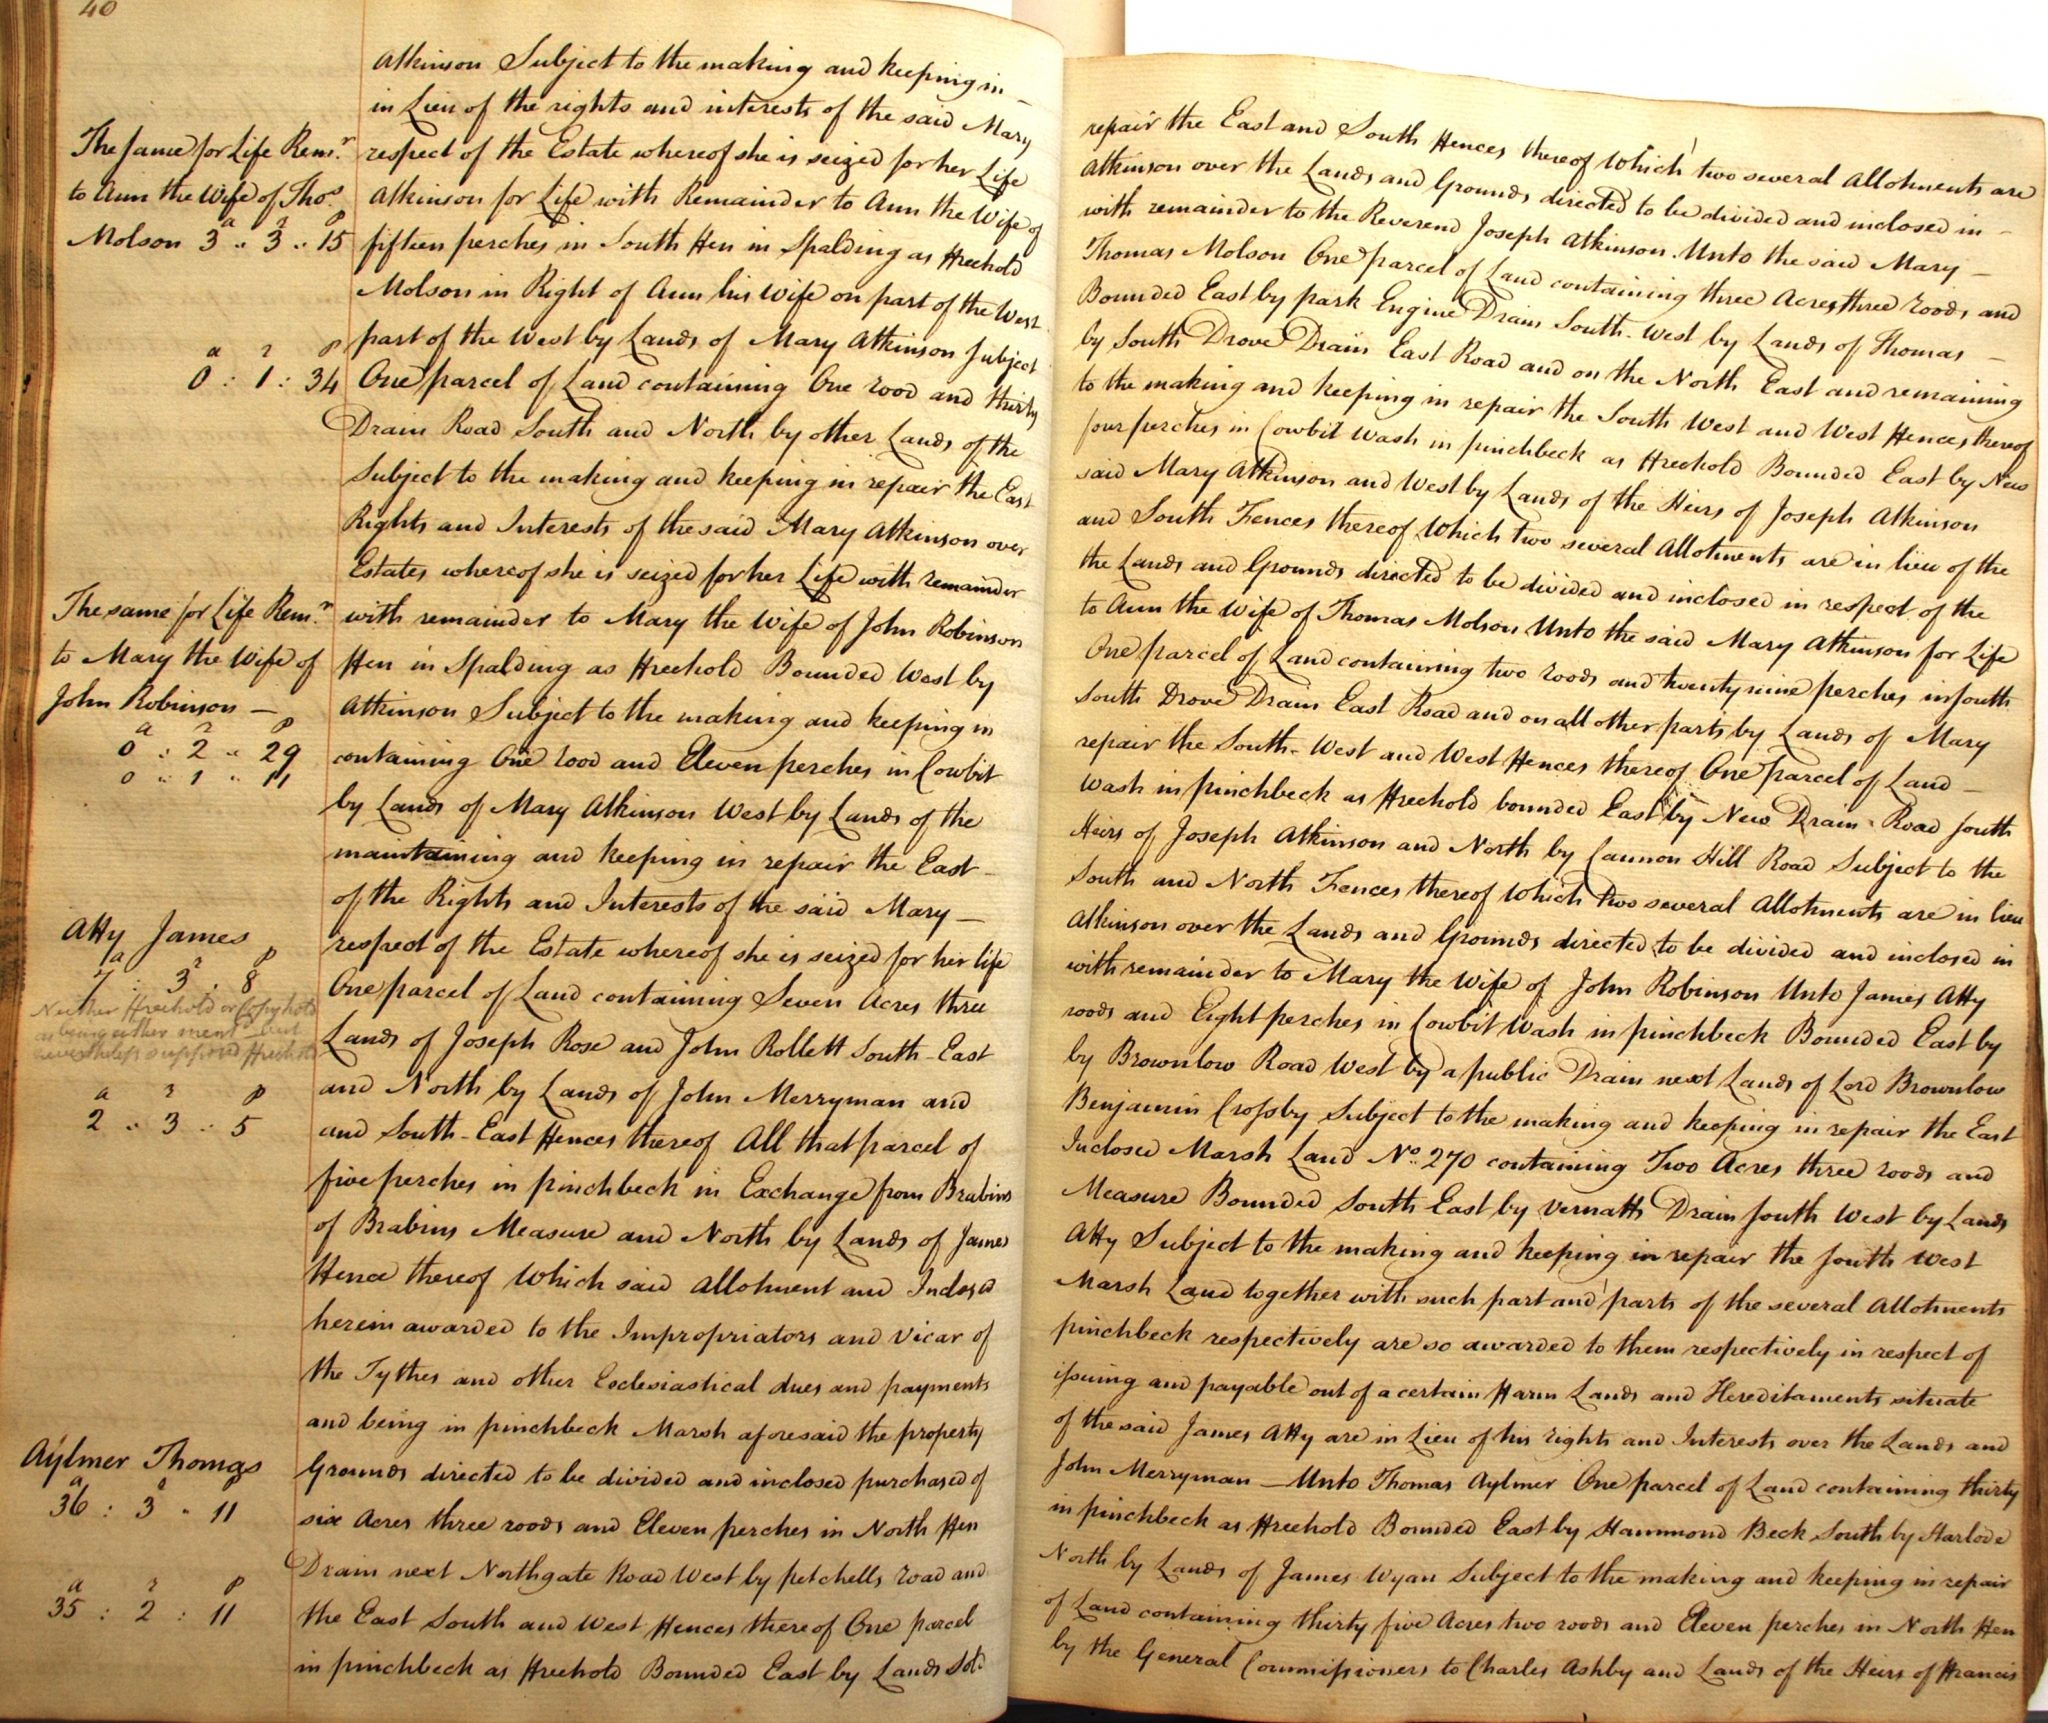 40
Atkinson Subject to the making and keeping in repair the East and South Fences thereof Which two several Allotments are
in Lieu of the rights and interests of the said Mary Atkinson over the Lands and Grounds directed to be divided and inclosed in
The same for Life Remr.
to Ann the Wife of Thos.
Molson 3a .. 3r .. 15p
respect of the Estate whereof she is seized for her Life with remainder to the Reverend Joseph Atkinson. Unto the said Mary
Atkinson for Life with Remainder to Ann the Wife of Thomas Molson One parcel of Land containing three Acres, three roods and
fifteen perches in South Fen in Spalding as Freehold Bounded East by park Engine Drain South-West by Lands of Thomas
Molson in Right of Ann his Wife on part of the West by South Drove Drain East Road and on the North East and remaining
part of the West by Lands of Mary Atkinson Subject to the making and keeping in repair the South West and West Fences thereof
a r p
0 : 1 : 34
One parcel of Land containing One rood and thirty four perches in Cowbit Wash in pinchbeck as Freehold Bounded East by New
Drain Road South and North by other Lands of the said Mary Atkinson and West by Lands of the Heirs of Joseph Atkinson
Subject to the making and keeping in repair the East and South Fences thereof Which two several Allotments are in lieu of the
Rights and Interests of the said Mary Atkinson over the Lands and Grounds directed to be divided and inclosed in respect of the
Estates whereof she is seized for her Life with remainder to Ann the Wife of Thomas Molson Unto the said Mary Atkinson for Life
The same for Life Remr.
to Mary the Wife of
John Robinson —
a r p
0 : 2 .. 29
0 .. 1 .. 11
with remainder to Mary the Wife of John Robinson One parcel of Land containing two roods and twenty nine perches in South
Fen in Spalding as Freehold Bounded West by South Drove Drain East Road and on all other parts by Lands of Mary
Atkinson Subject to the making and keeping in repair the South-West and West Fences thereof One parcel of Land —
containing One rood and Eleven perches in Cowbit Wash in pinchbeck as Freehold bounded East by New Drain Road South
by Lands of Mary Atkinson West by Lands of the Heirs of Joseph Atkinson and North by Cannon Hill Road Subject to the
maintaining and keeping in repair the East South and North Fences thereof Which two several Allotments are in lieu
of the Rights and Interests of the said Mary — Atkinson over the Lands and Grounds directed to be divided and inclosed in
Atty James
a r p
7 : 3 : 8
Neither Freehold or Copyhold
as being either mentd. but
nevertheless supposed Freehold
respect of the Estate whereof she is seized for her life with remainder to Mary the Wife of John Robinson Unto James Atty
One parcel of Land containing Seven Acres three roods and Eight perches in Cowbit Wash in pinchbeck Bounded East by
Lands of Joseph Rose and John Rollett South-East by Brownlow Road West by a public Drain next Lands of Lord Brownlow
and North by Lands of John Merryman and Benjamin Crossby Subject to the making and keeping in repair the East
a r p
2 .. 3 .. 5
and South-East Fences thereof All that parcel of Inclosed Marsh Land No. 270 containing Two Acres three roods and
five perches in pinchbeck in Exchange from Brabins Measure Bounded South East by Vernatts Drain South West by Lands
of Brabins Measure and North by Lands of James Atty Subject to the making and keeping in repair the South West
Fence thereof Which said Allotment and Inclosed Marsh Land together with such part and parts of the several Allotments
herein awarded to the Impropriators and Vicar of pinchbeck respectively are so awarded to them respectively in respect of
the Tythes and other Ecclesiastical dues and payments issuing and payable out of a certain Farm Lands and Hereditaments situate
and being in pinchbeck Marsh aforesaid the property of the said James Atty are in Lieu of his rights and Interests over the Lands and
Aylmer Thomas
a r p
36 : 3 .. 11
Grounds directed to be divided and inclosed purchased of John Merryman — Unto Thomas Aylmer One parcel of Land containing thirty
six Acres three roods and Eleven perches in North Fen in pinchbeck as Freehold Bounded East by Hammond Beck South by Starlode
Drain next Northgate Road West by petchells road and North by Lands of James Wyan Subject to the making and keeping in repair
a r p
35 : 2 : 11
the East South and West Fences thereof One parcel of Land containing thirty five Acres two roods and Eleven perches in North Fen
in pinchbeck as Freehold Bounded East by Lands Sold by the General Commissioners to Charles Ashby and Lands of the Heirs of Francis